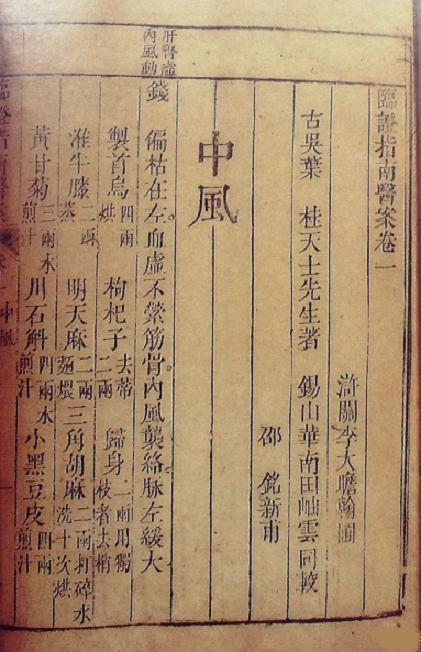 臨證指南醫案卷一
滸關李大瞻翰圃
古吳葉 桂天士先生著 錫山華南田岫雲同較
邵 銘新甫
中風
肝腎虛
內風動
錢 偏枯在左。血虛不縈筋骨。內風襲絡。脈左緩大
製首烏 四兩烘 枸杞子 去蒂二兩 歸身 二兩用獨枝者去梢
淮牛膝 二兩蒸 明天麻 二兩麵煨 三角胡麻 二兩打碎水洗十次烘
黃甘菊 三兩水煎汁 川石斛 四兩水煎汁 小黑豆皮 四兩煎汁
臨證指南醫 中風